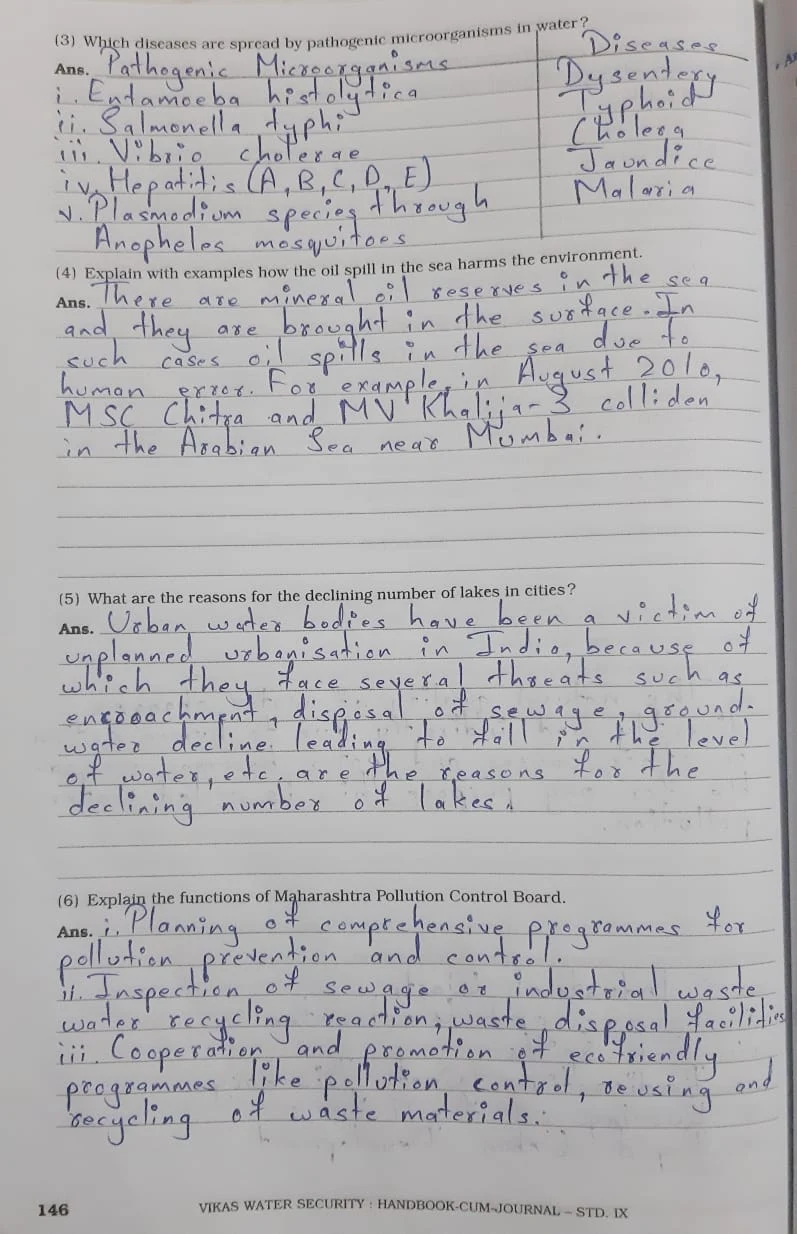 (3) Which diseases are spread by pathogenic microorganisms in water?
Ans. Pathogenic Microorganisms Diseases
i. Entamoeba histolytica Dysentery
ii. Salmonella typhi Typhoid
iii. Vibrio cholerae Cholera
iv. Hepatitis (A, B, C, D, E) Jaundice
v. Plasmodium species through Malaria
Anopheles mosquitoes
(4) Explain with examples how the oil spill in the sea harms the environment.
Ans. There are mineral oil reserves in the sea
and they are brought in the surface. In
such cases oil spills in the sea due to
human error. For example, in August 2010,
MSC Chitra and MV Khalija-3 colliden
in the Arabian Sea near Mumbai.
(5) What are the reasons for the declining number of lakes in cities?
Ans. Urban water bodies have been a victim of
unplanned urbanisation in India, because of
which they face several threats such as
encroachment, disposal of sewage, ground-
water decline leading to fall in the level
of water, etc. are the reasons for the
declining number of lakes.
(6) Explain the functions of Maharashtra Pollution Control Board.
Ans. i. Planning of comprehensive programmes for
pollution prevention and control.
ii. Inspection of sewage or industrial waste
water recycling reaction, waste disposal facilities
iii. Cooperation and promotion of ecofriendly
programmes like pollution control, reusing and
recycling of waste materials.
146 VIKAS WATER SECURITY : HANDBOOK-CUM-JOURNAL – STD. IX